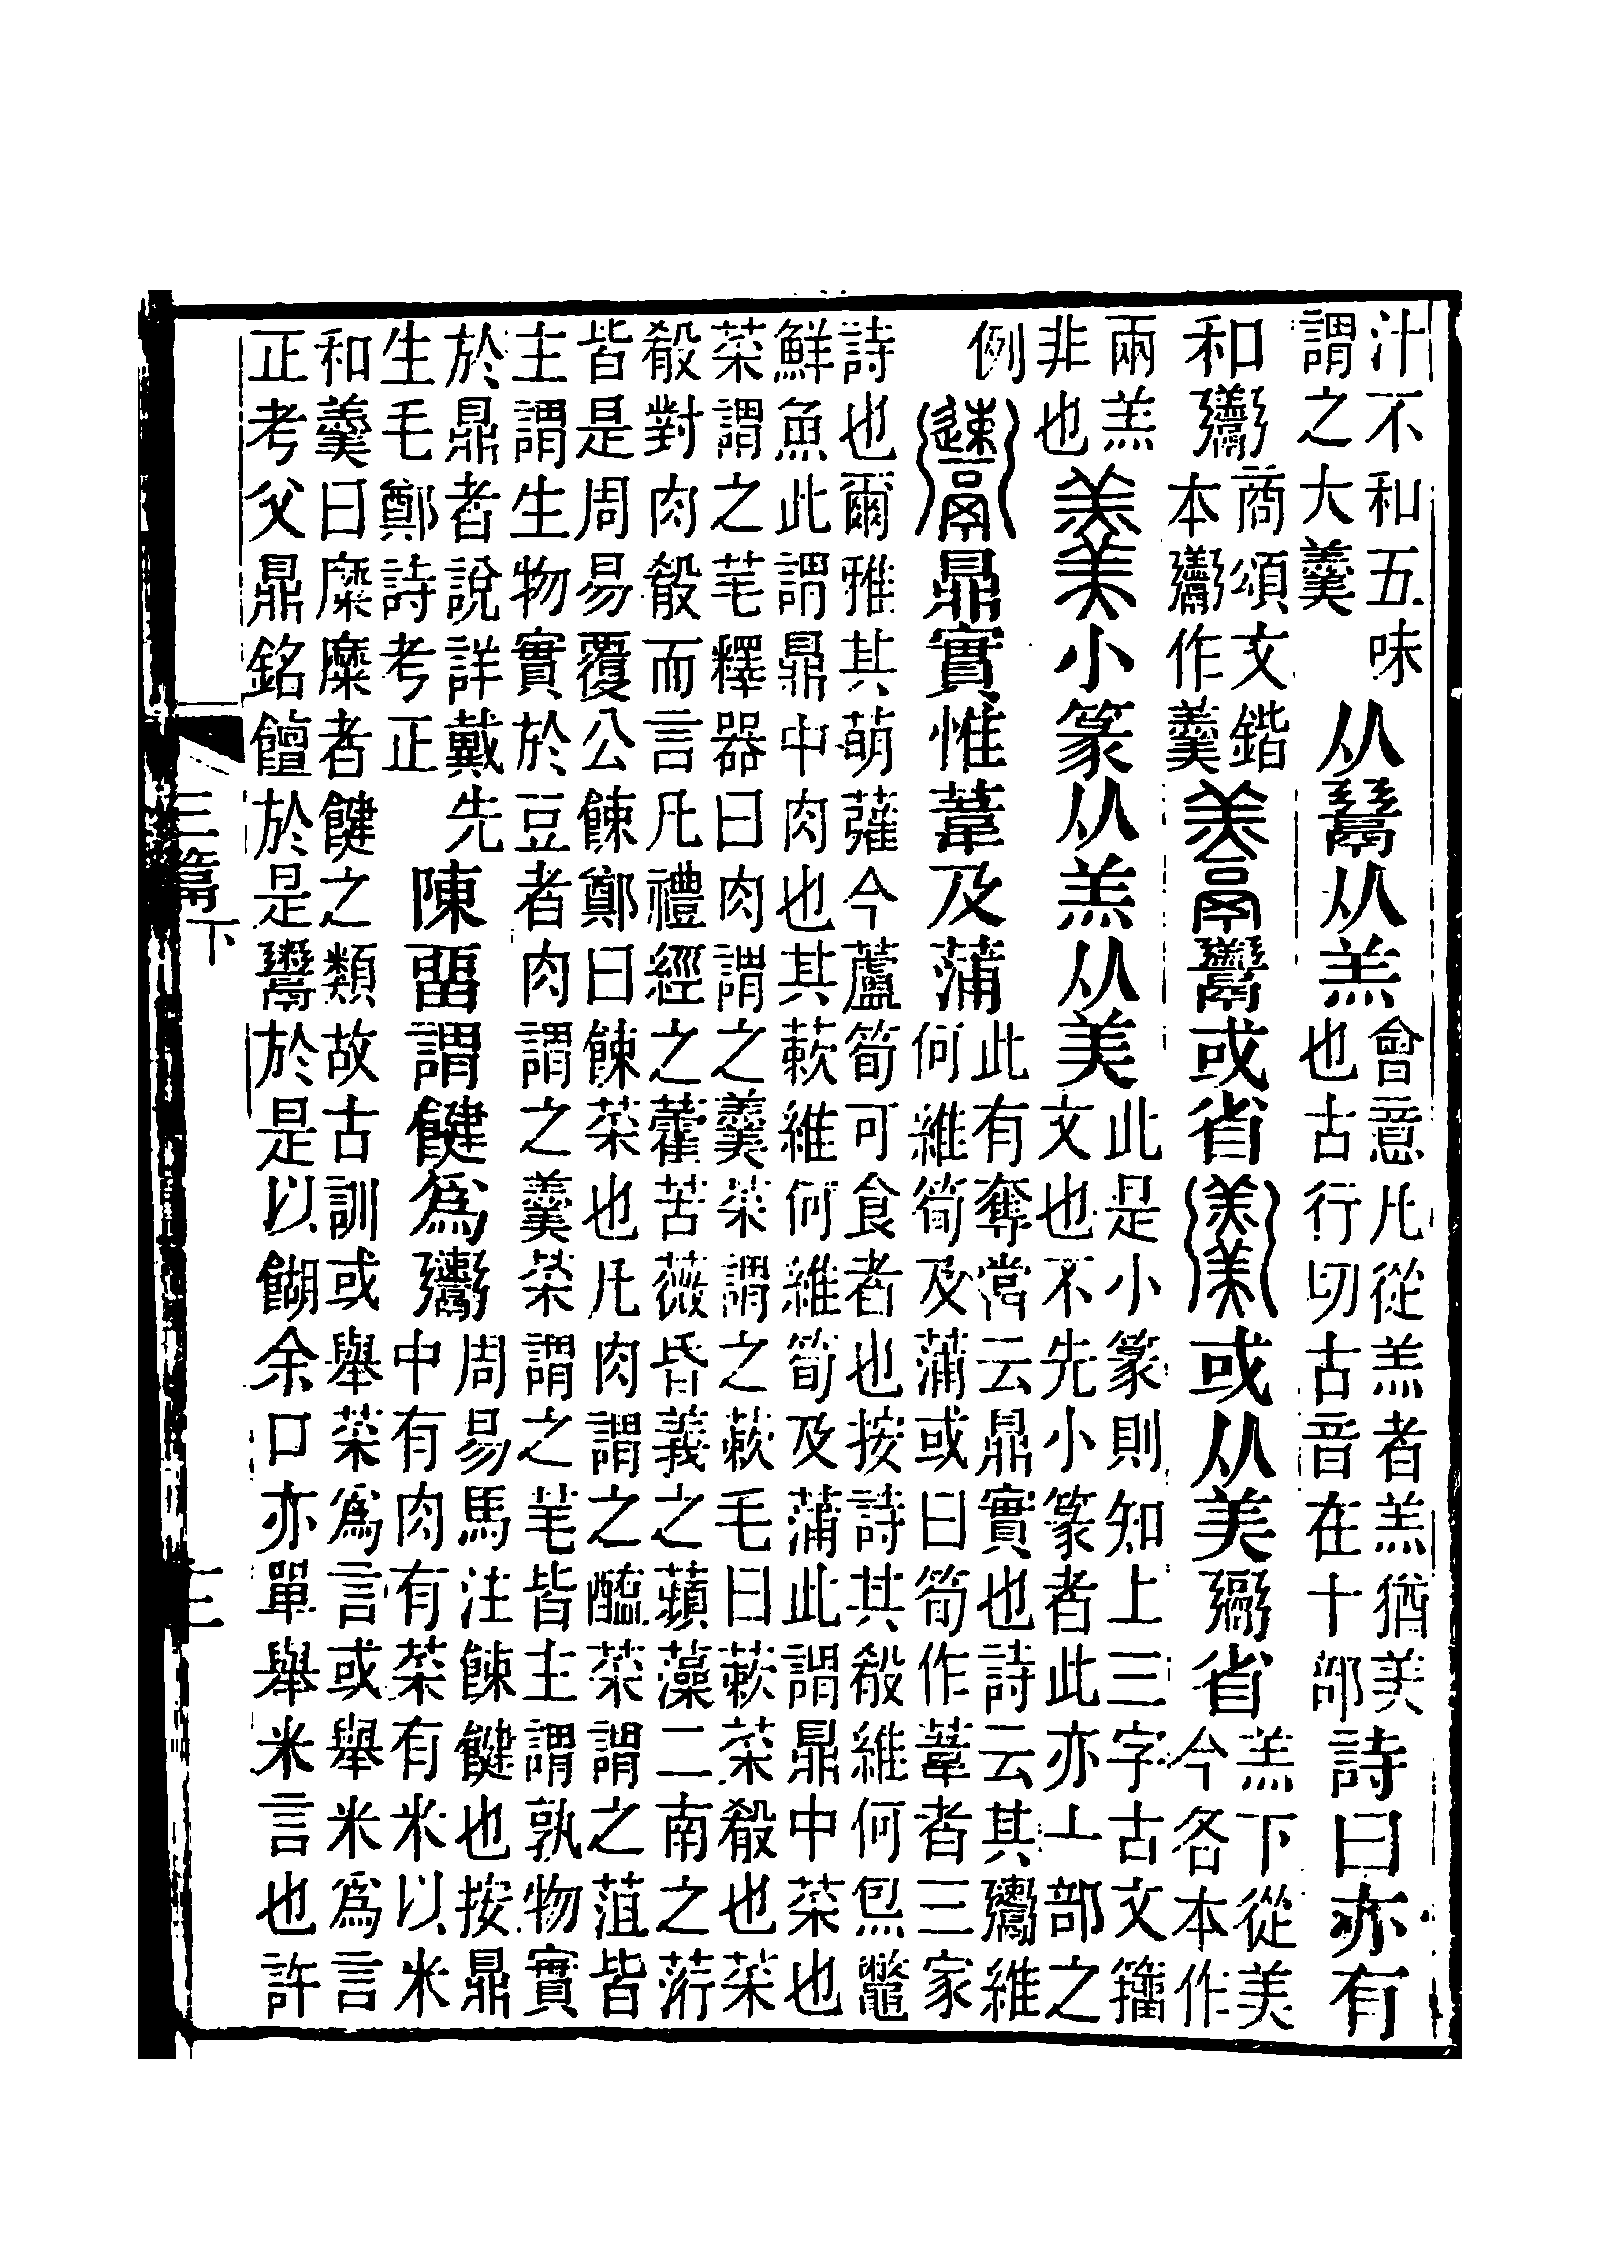 汁不和五味
謂之大羹
从䰜从羔
會意凡從羔者羔猶美
也古行切古音在十部
詩曰亦有
和𩱧
商頌文鍇
本𩱧作羹
或省
或从美䰜省
羔下從美
今各本作
兩羔
非也
羹小篆从羔从美
此是小篆則知上三字古文籒
文也不先小篆者此亦丄部之
例
𩱧鼎實惟葦及蒲
此有奪當云鼎實也詩云其𩱧維
何維筍及蒲或曰筍作葦者三家
詩也爾雅其萌虇今蘆筍可食者也按詩其殽維何炰鼈
鮮魚此謂鼎中肉也其蔌維何維筍及蒲此謂鼎中菜也
菜謂之芼釋器曰肉謂之羹菜謂之蔌毛曰蔌菜殽也菜
殽對肉殽而言凡禮經之藿苦薇昏義之蘋藻二南之荇
皆是周易覆公餗鄭曰餗菜也凡肉謂之醢菜謂之菹皆
主謂生物實於豆者肉謂之羹菜謂之芼皆主謂孰物實
於鼎者說詳戴先
生毛鄭詩考正
陳畱謂䭈爲鬻
周易馬注餗䭈也按鼎
中有肉有菜有米以米
和羹曰糜糜者䭈之類故古訓或舉菜爲言或舉米爲言
正考父鼎銘饘於是鬻於是以餬余口亦單舉米言也許
三篇下
三